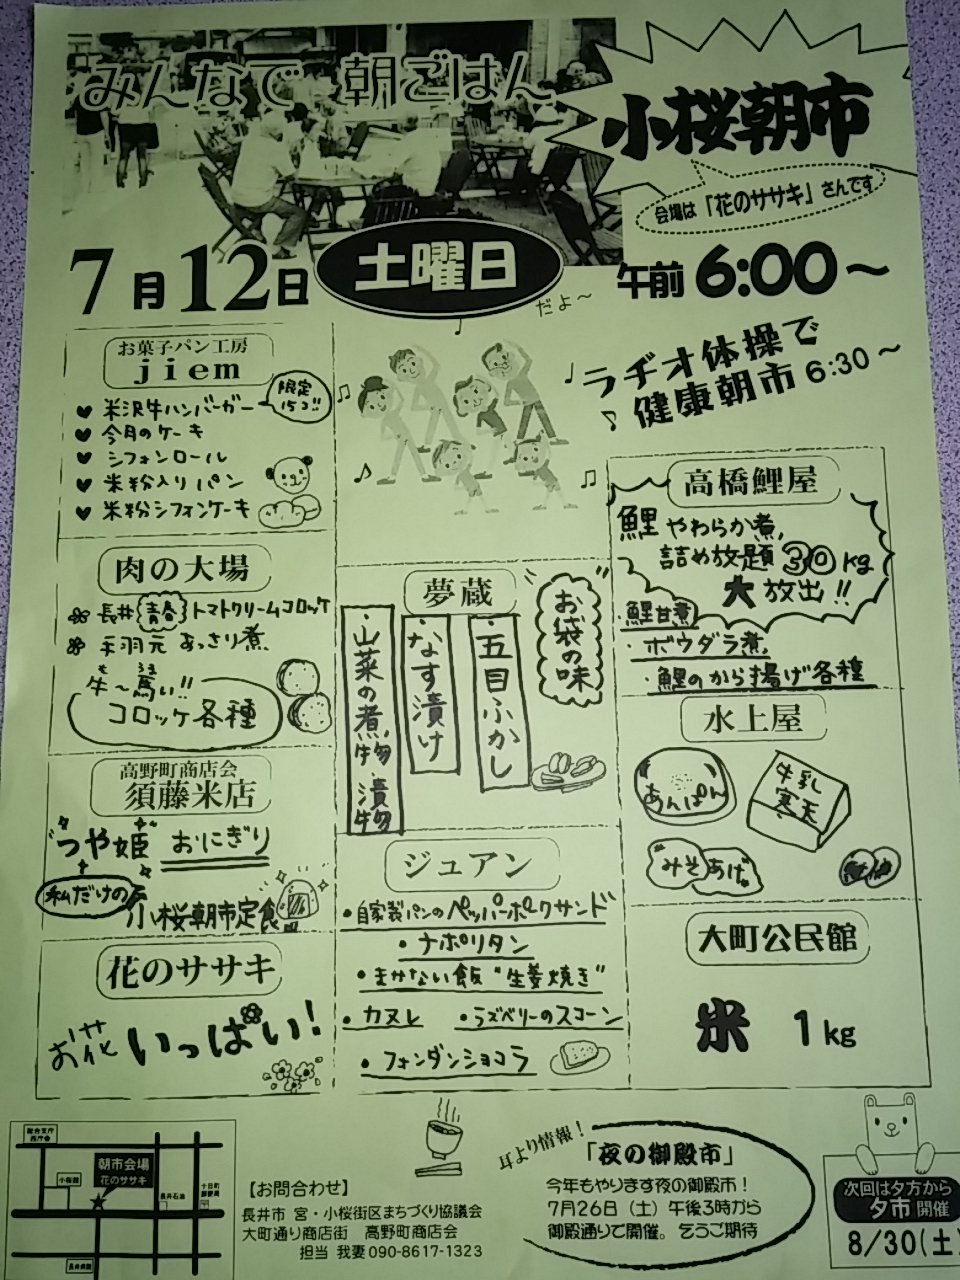 みんなで 朝ごはん
小桜朝市
会場は「花のササキ」さんです
7月12日 土曜日 午前6:00～
だよ～
ラヂオ体操で
健康朝市 6:30～
お菓子パン工房
jiem
♥ 米沢牛ハンバーガー
限定
15コ!!
♥ 今月のケーキ
♥ シフォンロール
♥ 米粉入りパン
♥ 米粉シフォンケーキ
肉の大場
長井 青春 トマトクリームコロッケ
手羽元 あっさり煮
牛～罵い!!
コロッケ各種
高野町商店会
須藤米店
"つや姫" おにぎり
私だけの
小桜朝市定食
花のササキ
お花 いっぱい!
夢蔵
お袋の味
・五目ふかし
・なす漬け
・山菜の煮物・漬物
ジュアン
・自家製パンのペッパーポークサンド
・ナポリタン
・まかない飯"生姜焼き"
・カヌレ ・ラズベリーのスコーン
・フォンダンショコラ
高橋鯉屋
鯉やわらか煮
詰め放題 30kg
大放出!!
・鯉甘煮
・ボウダラ煮
・鯉のから揚げ各種
水上屋
あんぱん
牛乳
寒天
みそあげ
大町公民館
米 1kg
総合支庁
西庁舎
小桜館
朝市会場
花のササキ
長井石油
十日町
郵便局
長井病院
【お問合わせ】
長井市 宮・小桜街区まちづくり協議会
大町通り商店街 高野町商店会
担当 我妻 090-8617-1323
耳より情報!
「夜の御殿市」
今年もやります夜の御殿市!
7月26日（土）午後3時から
御殿通りで開催。乞うご期待
次回は夕方から
夕市 開催
8/30(土)